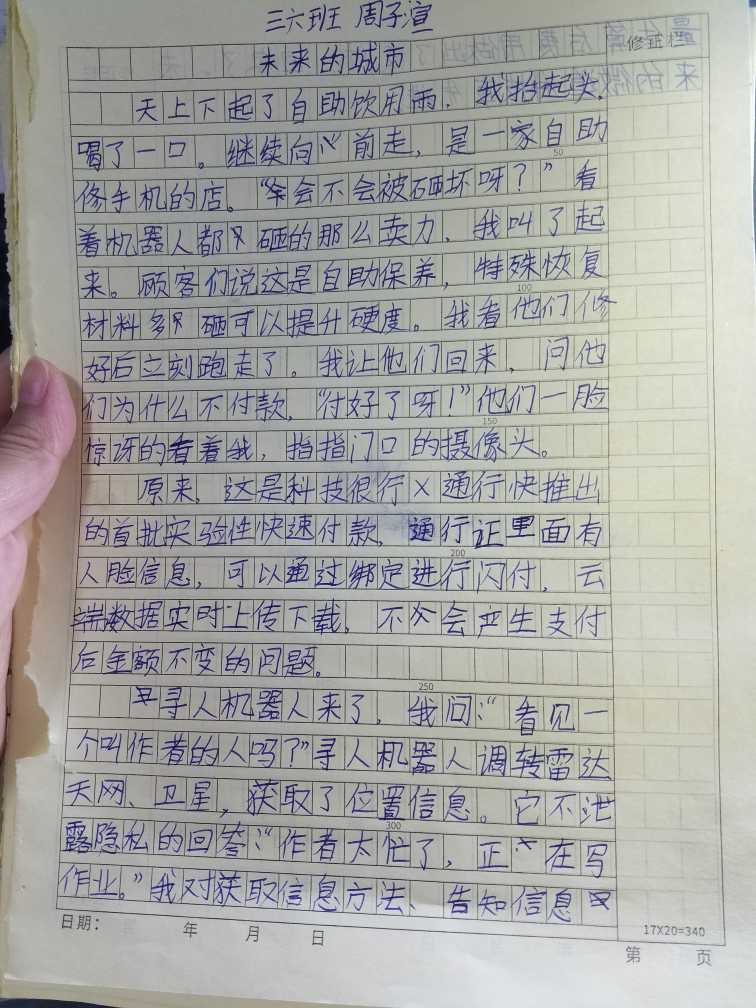 三六班 周子渲
修正栏
未来的城市
天上下起了自助饮用雨，我抬起头，
喝了一口。继续向前走，是一家自助
修手机的店。“会不会被砸坏呀？”看
着机器人都砸的那么卖力，我叫了起
来。顾客们说这是自助保养，特殊恢复
50
材料多砸可以提升硬度。我看他们修
100
好后立刻跑走了。我让他们回来，问他
们为什么不付款，“付好了呀！”他们一脸
惊讶的看着我，指指门口的摄像头。
150
原来，这是科技很行×通行快推出
的首批实验性快速付款，通行证里面有
人脸信息，可以通过绑定进行闪付，云
200
端数据实时上传下载，不会产生支付
后金额不变的问题。
寻人机器人来了，我问：“看见一
250
个叫作者的人吗？”寻人机器人调转雷达
天网、卫星，获取了位置信息。它不泄
露隐私的回答：“作者太忙了，正在写
300
作业。”我对获取信息方法、告知信息
日期： 年 月 日
17X20=340
第 页